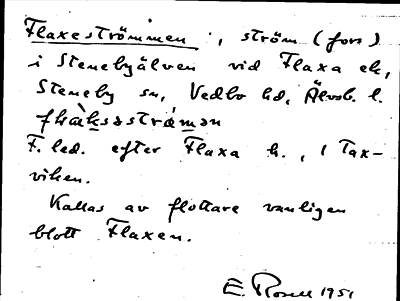 Flaxeströmmen, ström (fors)
i Stenebyälven vid Flaxa ek,
Steneby sn, Vedbo hd, Älvsb. l.
flàksəstrə́mən
F. led. efter Flaxa h., 1 Tax-
viken.
Kallas av flottare vanligen
blott Flaxen.
E. Rosell 1951